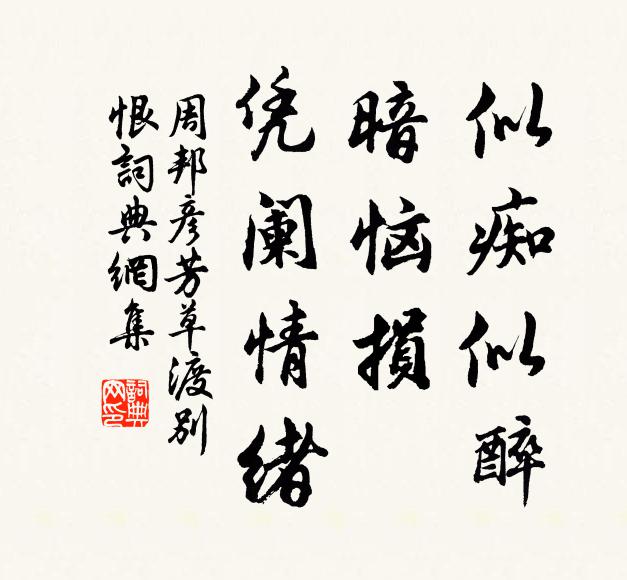 似痴似醉
暗恼损
凭阑情绪
周邦彦芳草渡别
恨詞典網集
詞典網印